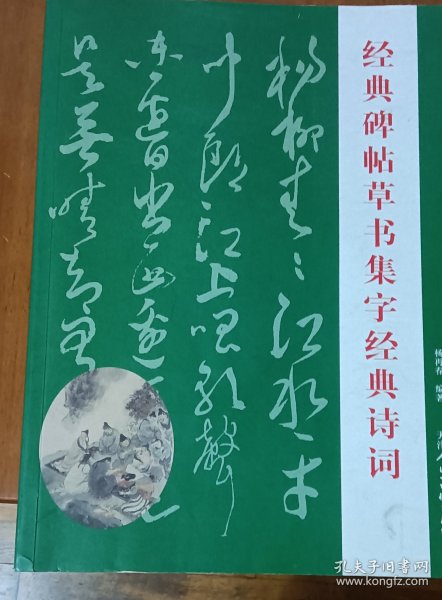 经典碑帖草书集字经典诗词
杨柳青〻江水平
闻郎江上唱歌聲
东边日出西边
是无晴却有
杨再春 编著 天津
孔夫子旧书网
www.kongfz.com